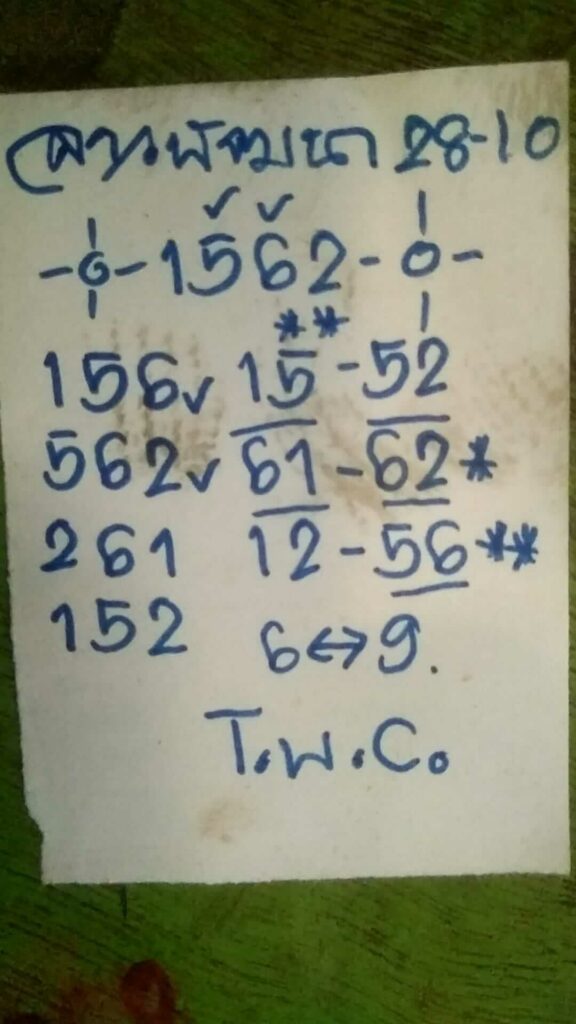 ลาวพัฒนา 28-10
-6-1562-0-
156✓ 15-52
562✓ 61-62*
261 12-56**
152 6↔9.
T.พ.C.